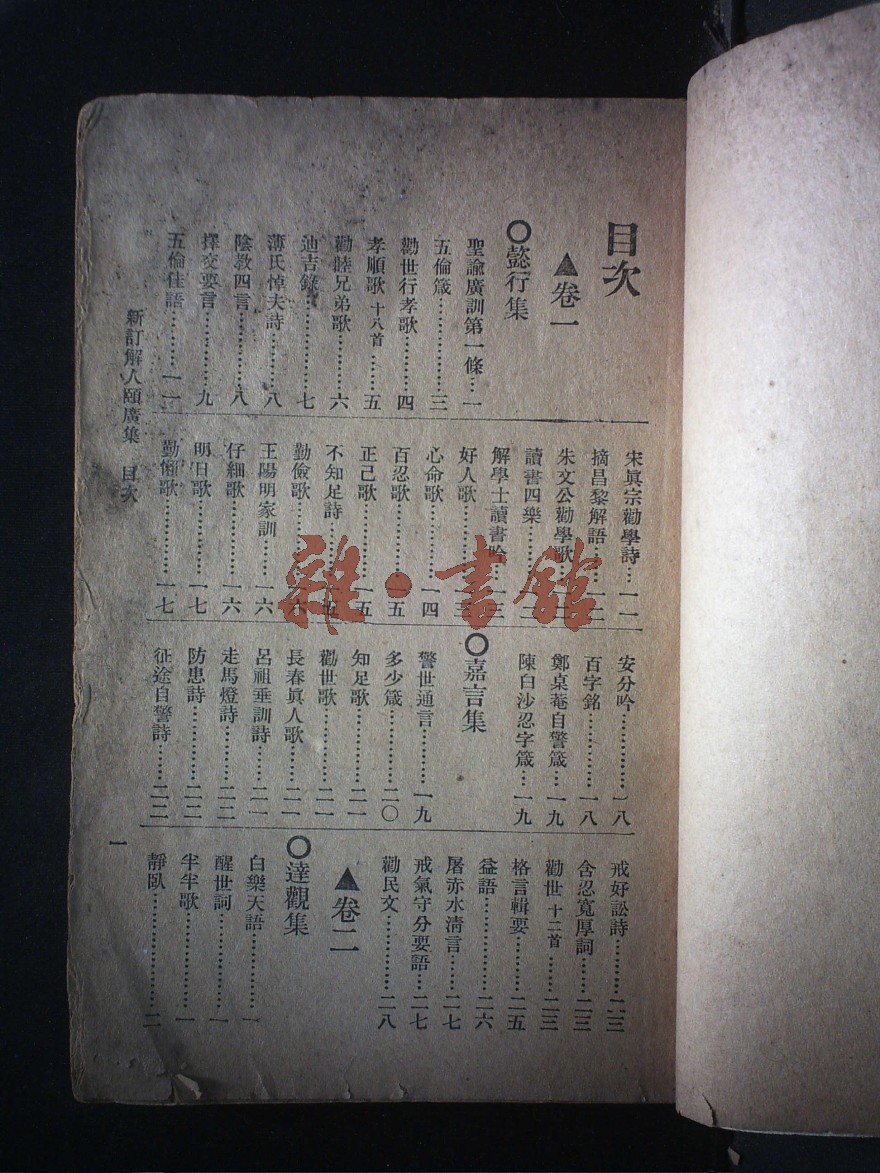 目次
▲卷一
○懿行集
聖諭廣訓第一條…一
五倫箴…………三
勸世行孝歌………四
孝順歌十八首……五
勸睦兄弟歌………六
迪吉錄……………七
薄氏悼夫詩………八
陰教四言…………八
擇交要言…………九
五倫佳語…………一一
宋眞宗勸學詩…一一
摘昌黎解語……一二
朱文公勸學歌
讀書四樂
解學士讀書吟
好人歌
心命歌…………一四
百忍歌…………一五
正己歌…………一五
不知足詩
勤儉歌
王陽明家訓……一六
仔細歌…………一六
明日歌…………一七
勤懶歌…………一七
安分吟…………一八
百字銘…………一八
鄭桌菴自警箴…一九
陳白沙忍字箴…一九
○嘉言集
警世通言………一九
多少箴…………二〇
知足歌…………二一
勸世歌…………二一
長春眞人歌……二一
呂祖垂訓詩……二一
走馬燈詩………二二
防患詩…………二二
征途自警詩……二二
戒好訟詩………二三
含忍寬厚詞……二三
勸世十二首……二三
格言輯要………二五
益語……………二六
屠赤水清言……二七
戒氣守分要語…二七
勸民文…………二八
▲卷二
○達觀集
白樂天語………一
醒世詞…………一
半半歌…………一
靜臥……………二
新訂解人頤廣集 目次
一
雜·書館